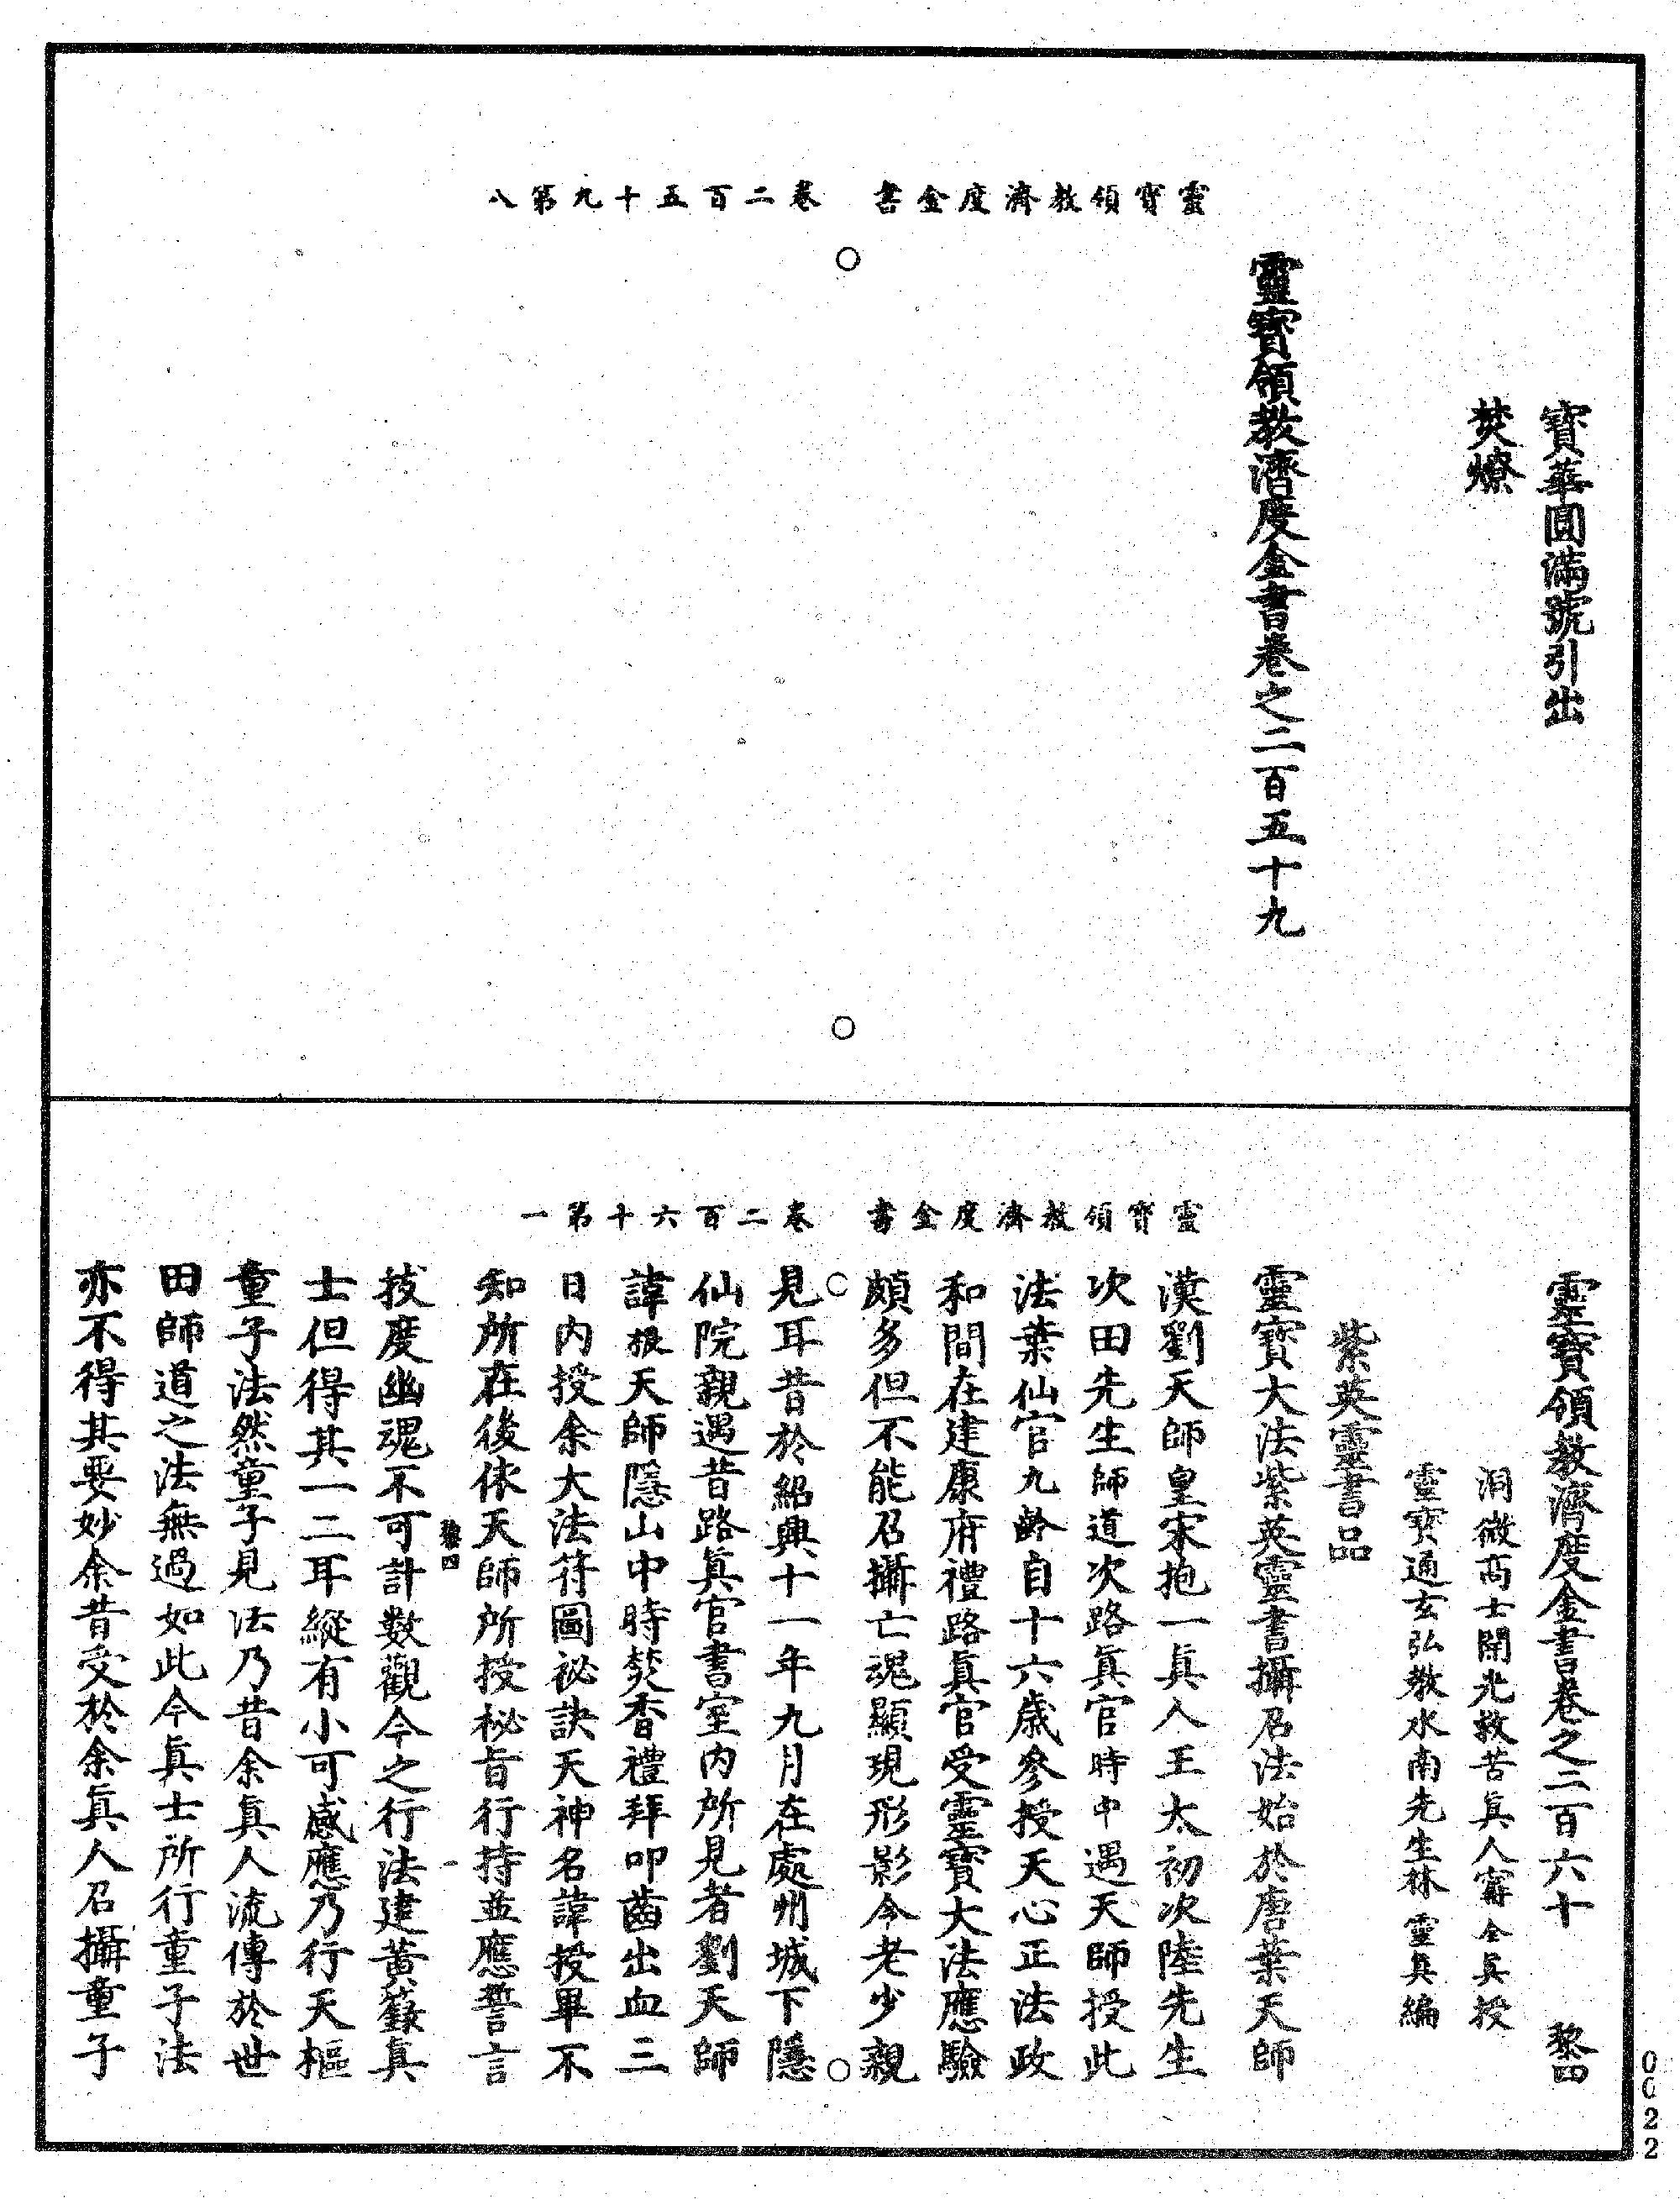 靈寶領教濟度金書　卷二百五十九第八
寶華圓滿號引出
焚燎
靈寶領教濟度金書卷之二百五十九
靈寶領教濟度金書　卷二百六十第一
靈寶領教濟度金書卷之二百六十　黎四
洞微高士開光救苦真人甯全真授
靈寶通玄弘教水南先生林靈真編
紫英靈書品
靈寶大法紫英靈書攝召法始於唐葉天師
漢劉天師皇宋抱一真人王太初次陸先生
次田先生師道次路真官時中遇天師授此
法葉仙官九齡自十六歲參授天心正法政
和間在建康府禮路真官受靈寶大法應驗
頗多但不能召攝亡魂顯現形影今老少親
見耳昔於紹興十一年九月在處州城下隱
仙院親遇昔路真官書室內所見者劉天師
諱根天師隱山中時焚香禮拜叩齒出血三
日內授余大法符圖祕訣天神名諱授畢不
知所在後依天師所授秘旨行持並應誓言
黎四
一
拔度幽魂不可計數觀今之行法建黃籙真
士但得其一二耳縱有小可感應乃行天樞
童子法然童子見法乃昔余真人流傳於世
田師道之法無過如此今真士所行童子法
亦不得其要妙余昔受於余真人召攝童子
0022